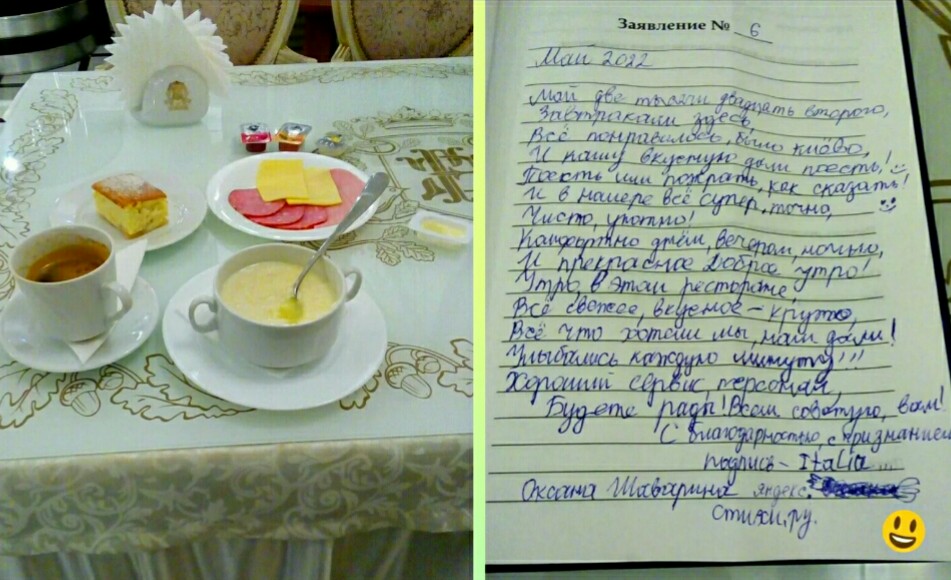 Заявление № 6
Май 2022
Май две тысячи двадцать второго,
Завтракали здесь,
Всё понравилось, было клёво,
И кашу вкусную дали поесть!
Поесть или пожрать, как сказать!
И в номере всё супер, точно,
Чисто, уютно!
Комфортно днём, вечером, ночью,
И прекрасное Доброе утро!
Утро в этом ресторане,
Всё свежее, вкусное - круто,
Всё что хотели мы, нам дали!
Улыбались каждую минуту!!!
Хороший сервис, персонал,
Будете рады! Всем советую, всем!
С благодарностью, с признанием
подпись - Italia
Оксана Шаварина Яндекс.
стихи,ру.